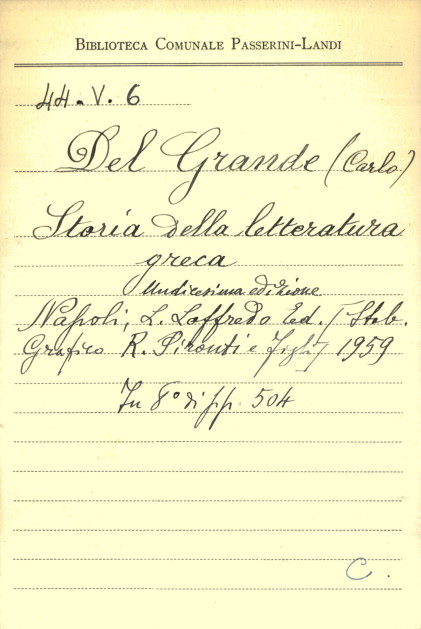 BIBLIOTECA COMUNALE PASSERINI-LANDI
44.V.6
Del Grande (Carlo)
Storia della letteratura
greca
Undicesima edizione
Napoli, L. Loffredo Ed. [Stab.
Grafico R. Pironti e figli] 1959
In 8° di pp. 504
C.